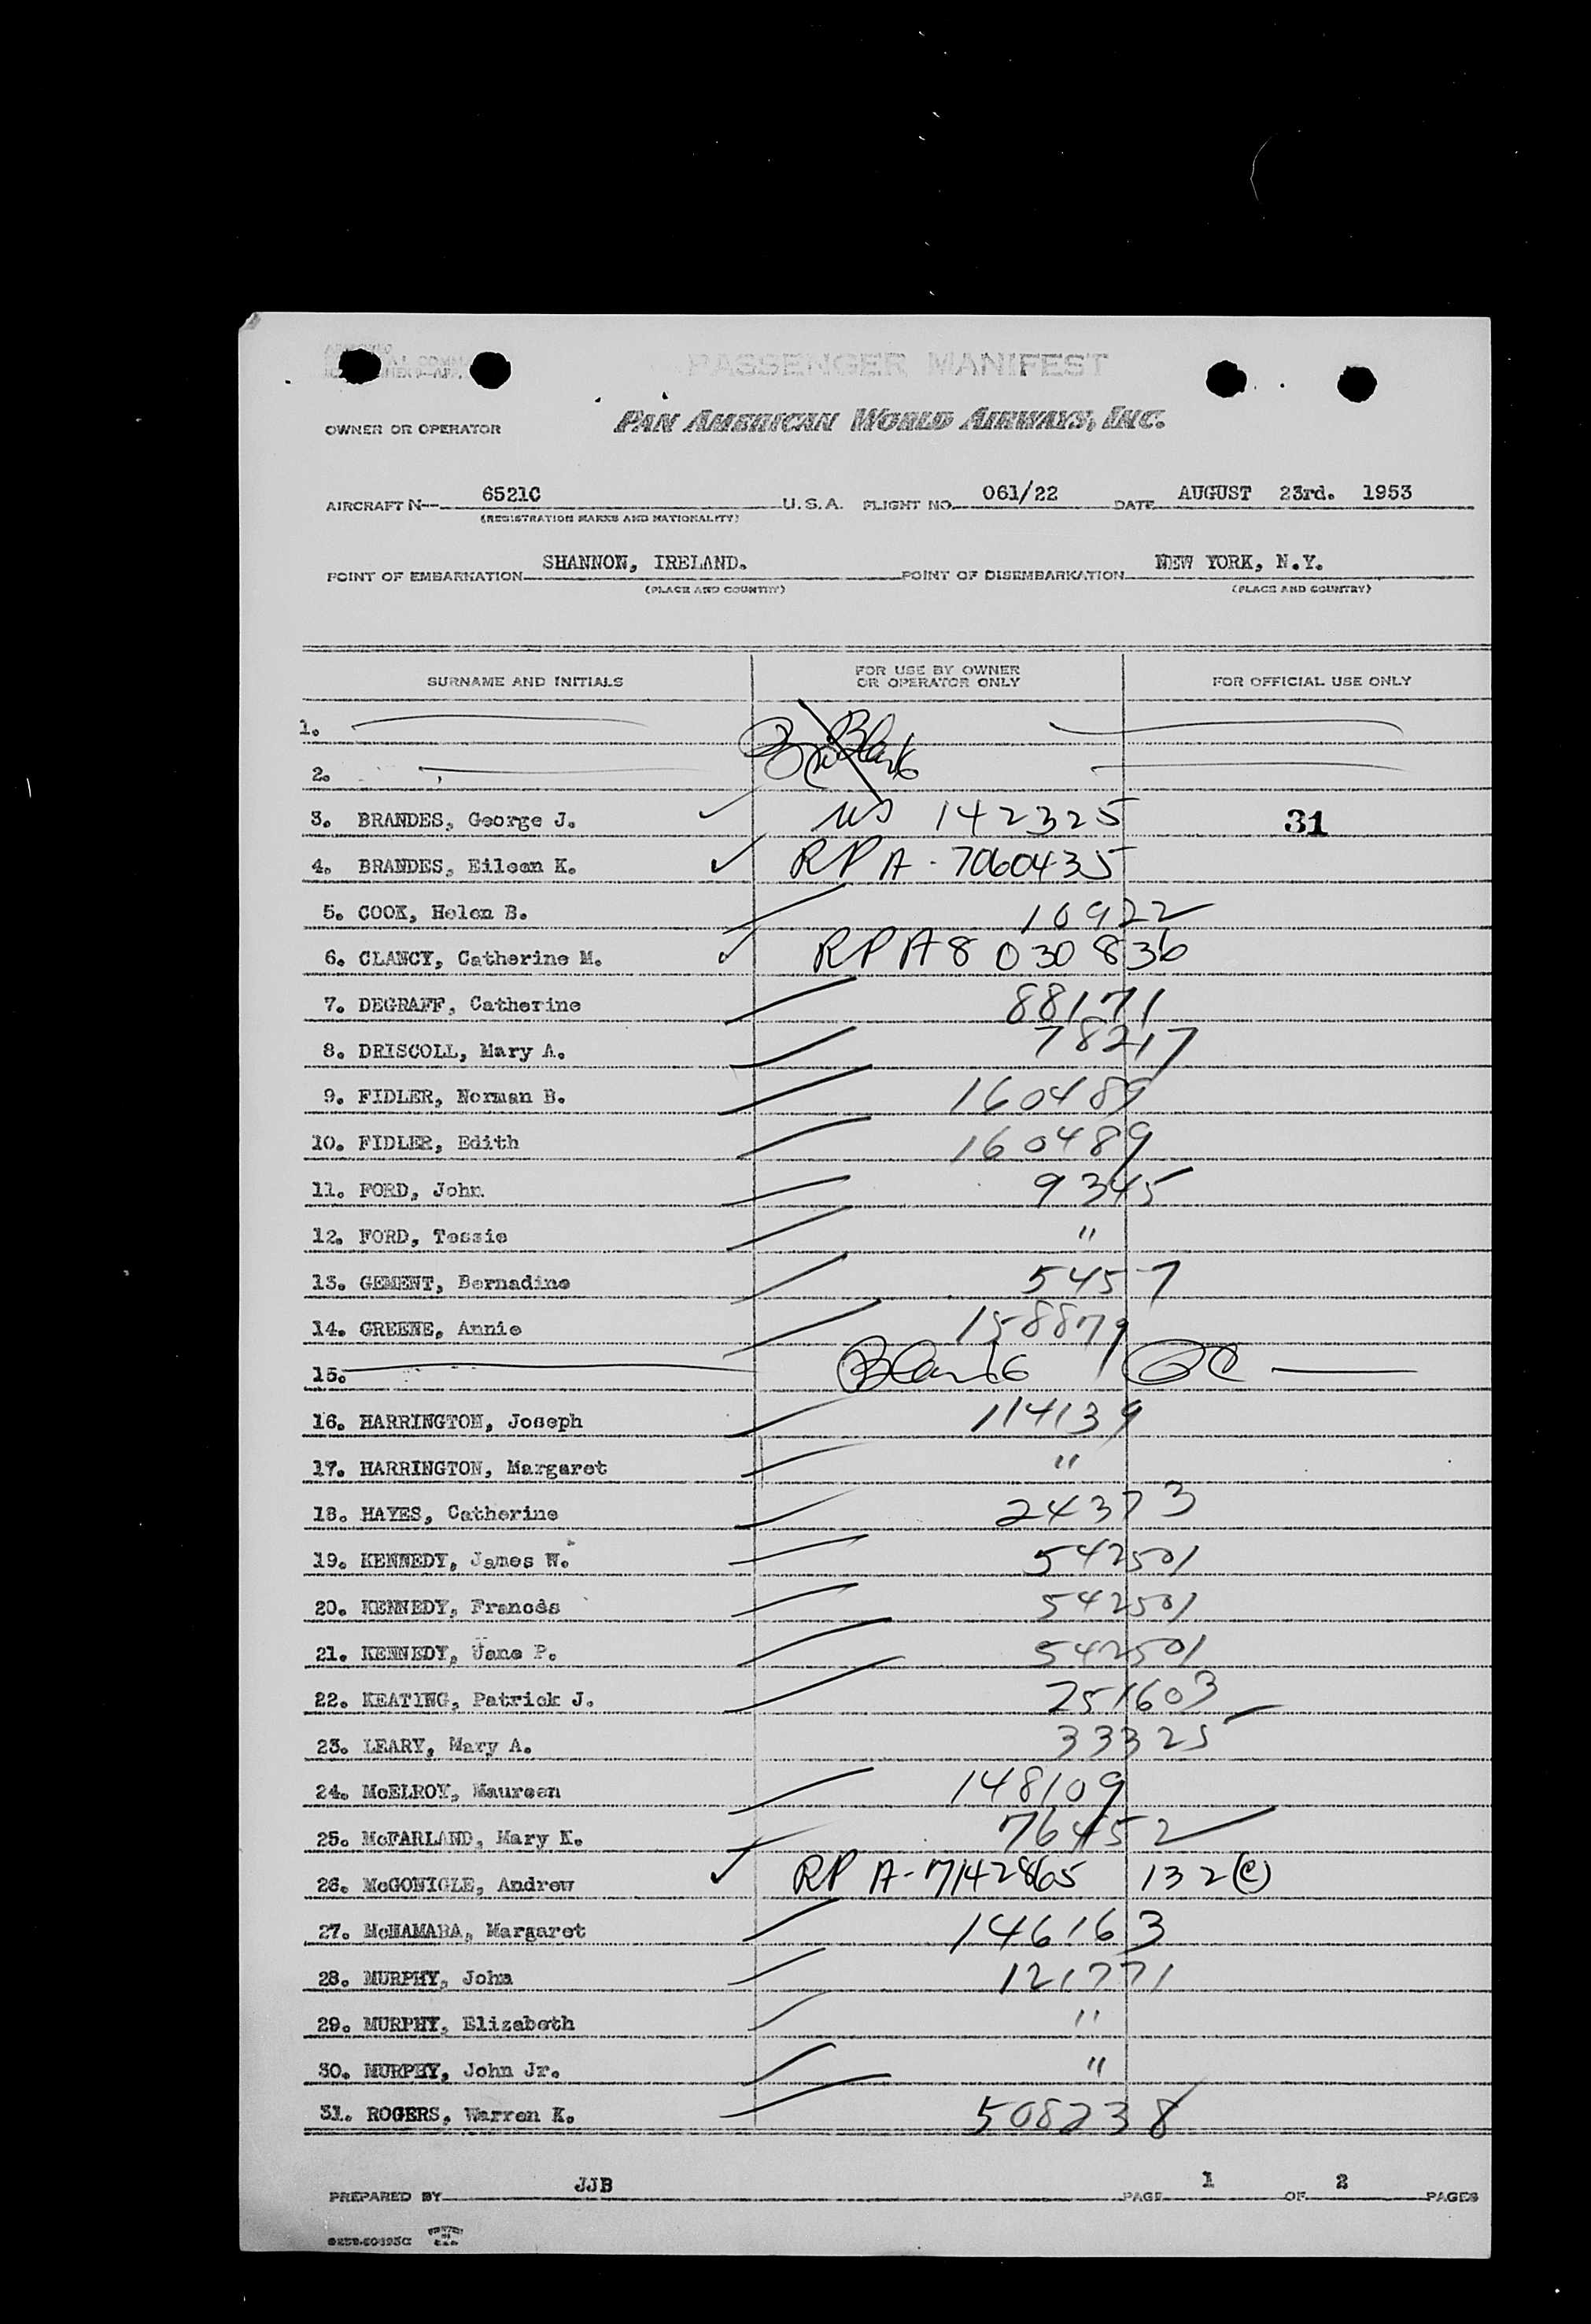 PASSENGER MANIFEST
OWNER OR OPERATOR PAN AMERICAN WORLD AIRWAYS, INC.
AIRCRAFT N— 6521C U.S.A. FLIGHT NO. 061/22 DATE AUGUST 23rd. 1953
(REGISTRATION MARKS AND NATIONALITY)
POINT OF EMBARKATION SHANNON, IRELAND. POINT OF DISEMBARKATION NEW YORK, N.Y.
(PLACE AND COUNTRY) (PLACE AND COUNTRY)
SURNAME AND INITIALS FOR USE BY OWNER OR OPERATOR ONLY FOR OFFICIAL USE ONLY
1.
2. Blank
3. BRANDES, George J. US 142325 31
4. BRANDES, Eileen K. RP A-7060435
5. COOK, Helen B. 10922
6. CLANCY, Catherine M. RP A8 030 836
7. DEGRAFF, Catherine 88171
8. DRISCOLL, Mary A. 78217
9. FIDLER, Norman B. 160489
10. FIDLER, Edith 160489
11. FORD, John 9345
12. FORD, Tessie "
13. GEMENT, Bernadine 5457
14. GREENE, Annie 158879
15. Blank
16. HARRINGTON, Joseph 114139
17. HARRINGTON, Margaret "
18. HAYES, Catherine 24373
19. KENNEDY, James W. 542501
20. KENNEDY, Frances 542501
21. KENNEDY, Jane P. 542501
22. KEATING, Patrick J. 251603
23. LEARY, Mary A. 33325
24. McELROY, Maureen 148109
25. McFARLAND, Mary K. 76452
26. McGONIGLE, Andrew RP A-7142865 132(e)
27. McNAMARA, Margaret 146163
28. MURPHY, John 121771
29. MURPHY, Elizabeth "
30. MURPHY, John Jr. "
31. ROGERS, Warren K. 508238
PREPARED BY JJB PAGE 1 OF 2 PAGES